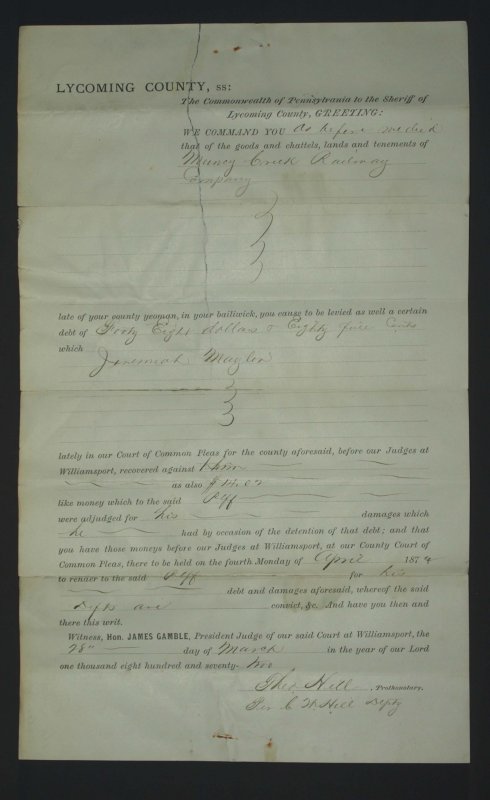 LYCOMING COUNTY, ss:
The Commonwealth of Pennsylvania to the Sheriff of
Lycoming County, GREETING:
WE COMMAND YOU As before
that of the goods and chattels, lands and tenements of
Muncy Creek Railway
Company
late of your county yeoman, in your bailiwick, you cause to be levied as well a certain
debt of Forty Eight dollars & Eighty five Cents
which
Jeremiah
lately in our Court of Common Pleas for the county aforesaid, before our Judges at
Williamsport, recovered against
as also
like money which to the said Plff
were adjudged for his damages which
he had by occasion of the detention of that debt; and that
you have those moneys before our Judges at Williamsport, at our County Court of
Common Pleas, there to be held on the fourth Monday of April 187
to render to the said Plff for his
debt and damages aforesaid, whereof the said
Dfts are convict, &c. And have you then and
there this writ.
Witness, Hon. JAMES GAMBLE, President Judge of our said Court at Williamsport, the
28" day of March in the year of our Lord
one thousand eight hundred and seventy- two
Theo Hill, Prothonotary.
Per C W Hill Depty